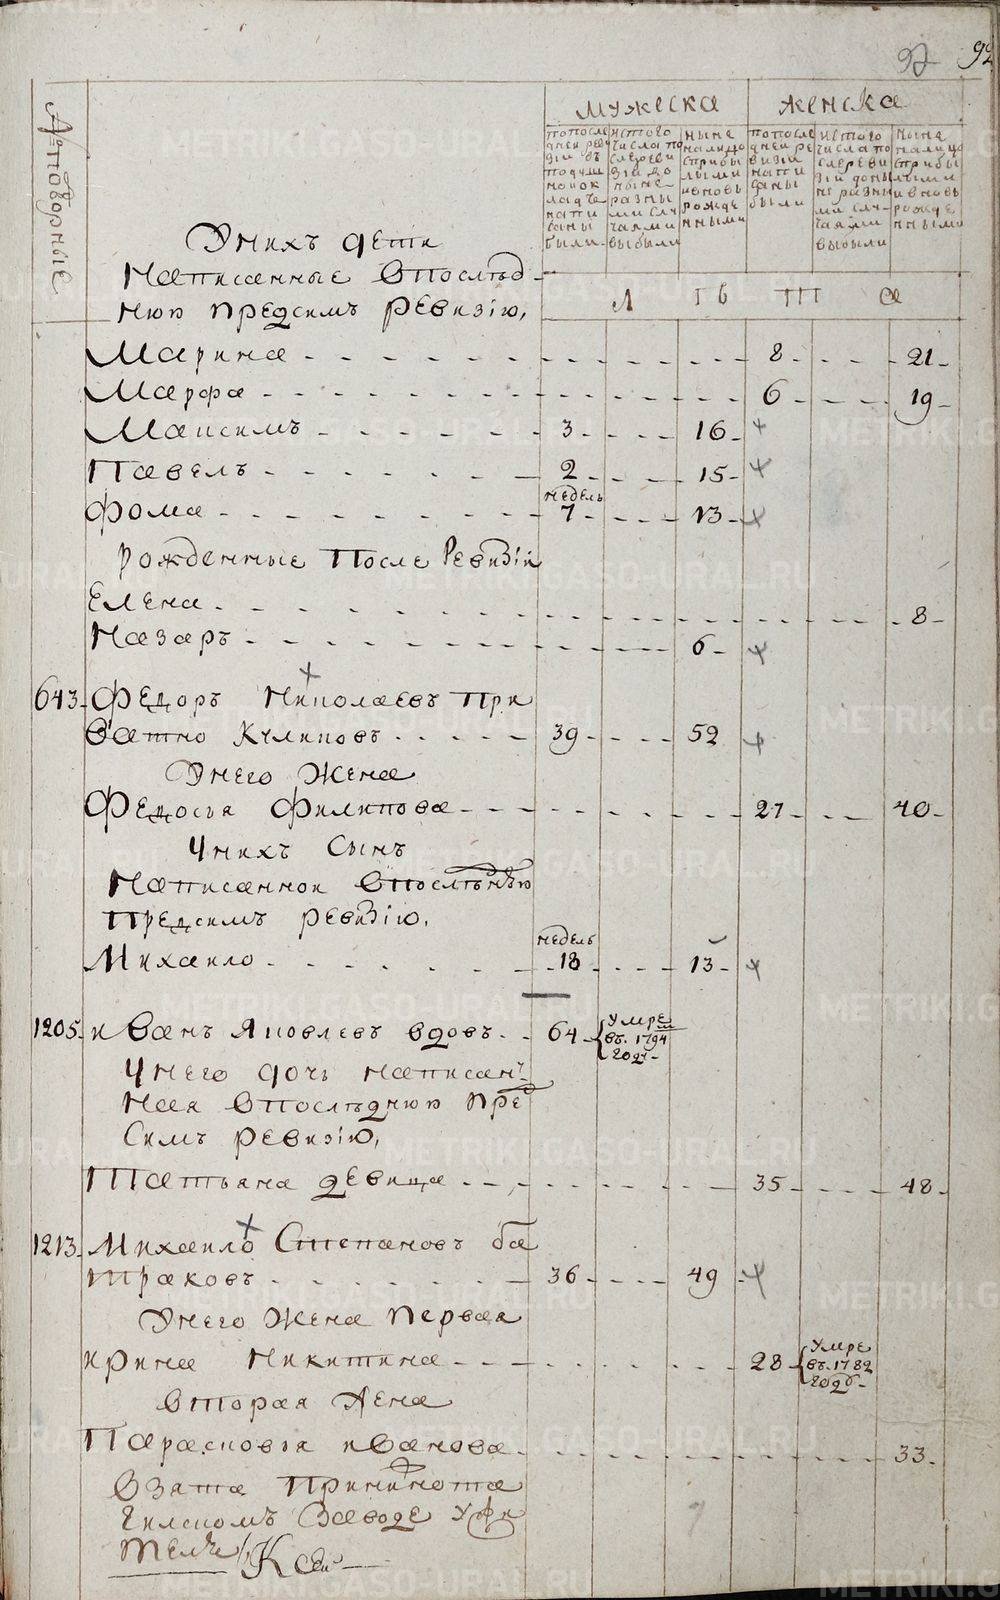 92
Мужеска
Женска
попосле
дней реви
зіи въ
подуш
ной ок
ладъ
напи
саны
были
ис того
числа по
сле реви
зіи до
ныне
разны
ми слу
чаями
выбыли
ныне
налицо
с прибы
лыми
и вновь
рожде
нными
попосле
дней ре
визіи
напи
саны
были
ис того
числа по
сле реви
зіи доны
не разны
ми слу
чаями
выбыли
ныне
налицо
с прибы
лыми
и вновь
рожде
нными
Л ѣ т а
У нихъ дети
Написанные в послѣд
нюю предсимъ ревизію,
Марина 8 21
Марфа 6 19
Максимъ 3 16
Павелъ 2 15
недель
Фома 7 13
Рожденные После Ревизіи
Елена 8
Назаръ 6
643. Федоръ Николаевъ При
ватно Куликовъ 39 52
У него Жена
Федосья Филипова 27 40
У нихъ Сынъ
Написанной в послѣднюю
предсимъ ревизію,
недель
Михайло 18 13
1205. Иванъ Яковлевъ вдовъ 64 Умре
въ 1794
году
У него дочь написан
ная в послѣднюю пред
симъ ревизію,
Татьяна девица 35 48
1213. Михайло Степановъ ба
траковъ 36 49
У него Жена Первая
Ирина Никитина 28 Умре
въ 1782
году
Вторая Жена
Парасковья Иванова 33
Взята При нижнота
гилскомъ Заводе У жи
теля
К сей
METRIKI.GASO-URAL.RU